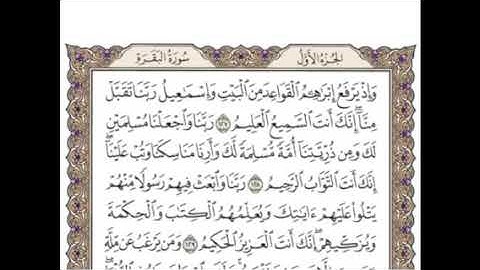 الجزء الأول
سورة البقرة
وَإِذْ يَرْفَعُ إِبْرَٰهِـۧمُ ٱلْقَوَاعِدَ مِنَ ٱلْبَيْتِ وَإِسْمَٰعِيلُ رَبَّنَا تَقَبَّلْ
مِنَّآ ۖ إِنَّكَ أَنتَ ٱلسَّمِيعُ ٱلْعَلِيمُ ۝١٢٧ رَبَّنَا وَٱجْعَلْنَا مُسْلِمَيْنِ
لَكَ وَمِن ذُرِّيَّتِنَآ أُمَّةً مُّسْلِمَةً لَّكَ وَأَرِنَا مَنَاسِكَنَا وَتُبْ عَلَيْنَآ ۖ
إِنَّكَ أَنتَ ٱلتَّوَّابُ ٱلرَّحِيمُ ۝١٢٨ رَبَّنَا وَٱبْعَثْ فِيهِمْ رَسُولًا مِّنْهُمْ
يَتْلُوا۟ عَلَيْهِمْ ءَايَٰتِكَ وَيُعَلِّمُهُمُ ٱلْكِتَٰبَ وَٱلْحِكْمَةَ
وَيُزَكِّيهِمْ ۚ إِنَّكَ أَنتَ ٱلْعَزِيزُ ٱلْحَكِيمُ ۝١٢٩ وَمَن يَرْغَبُ عَن مِّلَّةِ